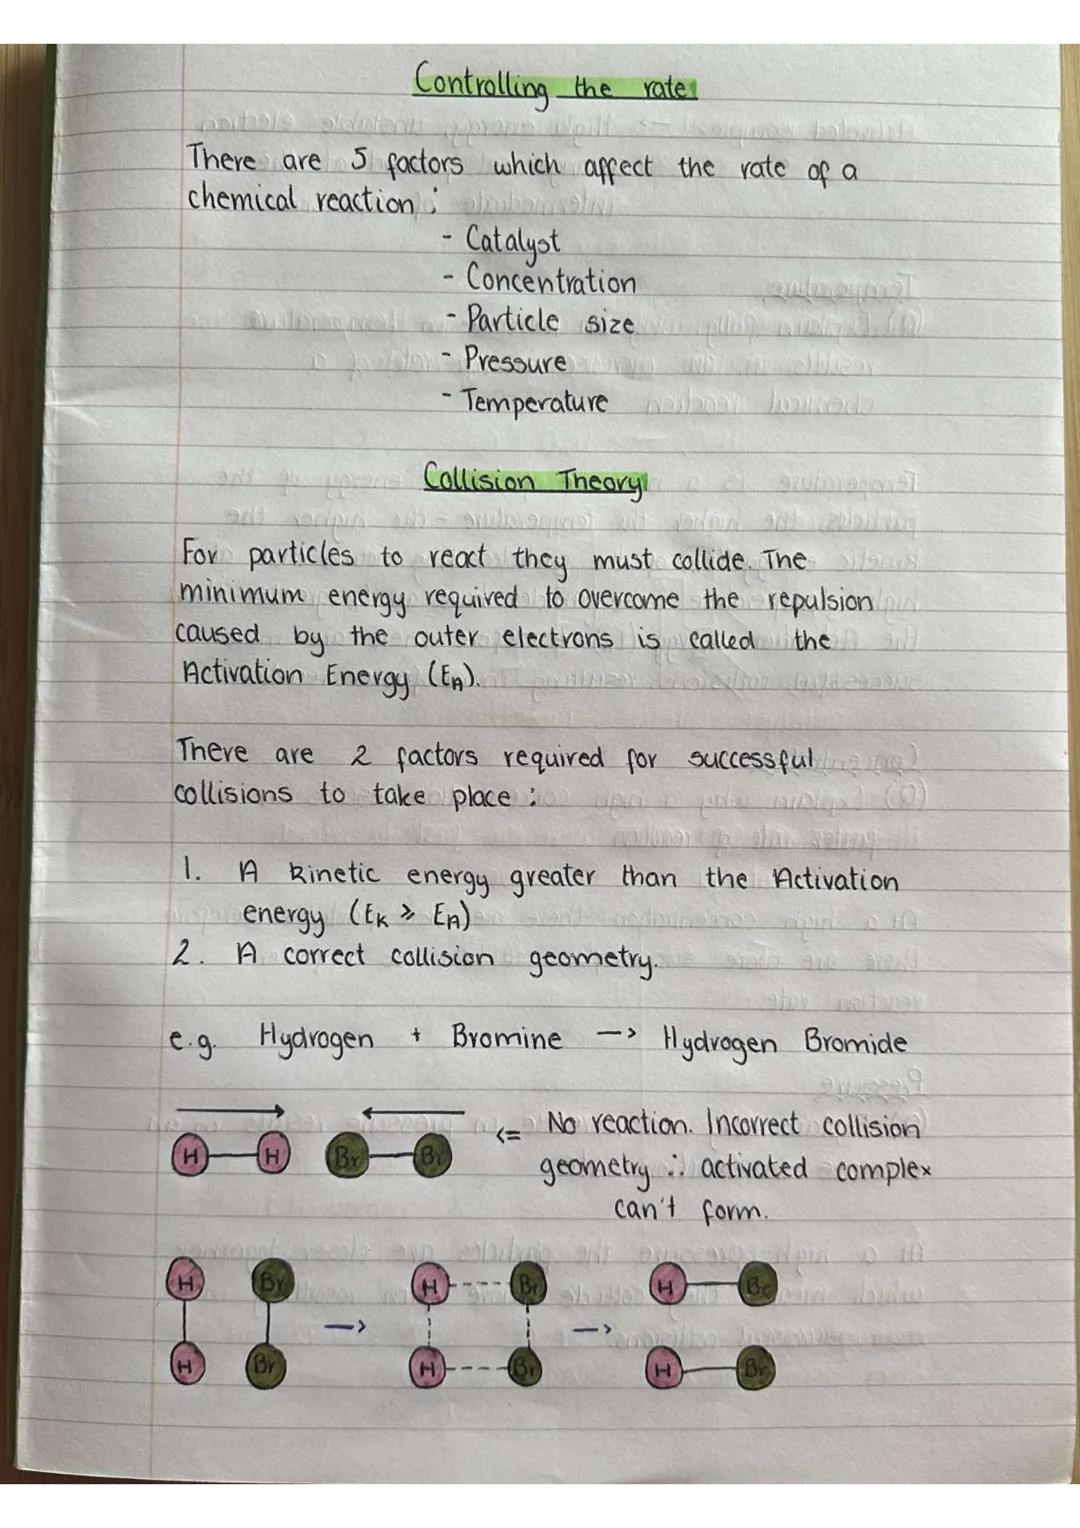 Controlling the rate
There are 5 factors which affect the rate of a
chemical reaction :
- Catalyst
- Concentration
- Particle size
- Pressure
- Temperature
Collision Theory
For particles to react they must collide. The
minimum energy required to overcome the repulsion
caused by the outer electrons is called the
Activation Energy (EA).
There are 2 factors required for successful
collisions to take place :
1. A kinetic energy greater than the Activation
energy (EK ⩾ EA)
2. A correct collision geometry.
e.g. Hydrogen + Bromine -> Hydrogen Bromide
H H Br Br <= No reaction. Incorrect collision
geometry ∴ activated complex
can't form.
H Br H Br H Br
-> ->
H Br H Br H Br